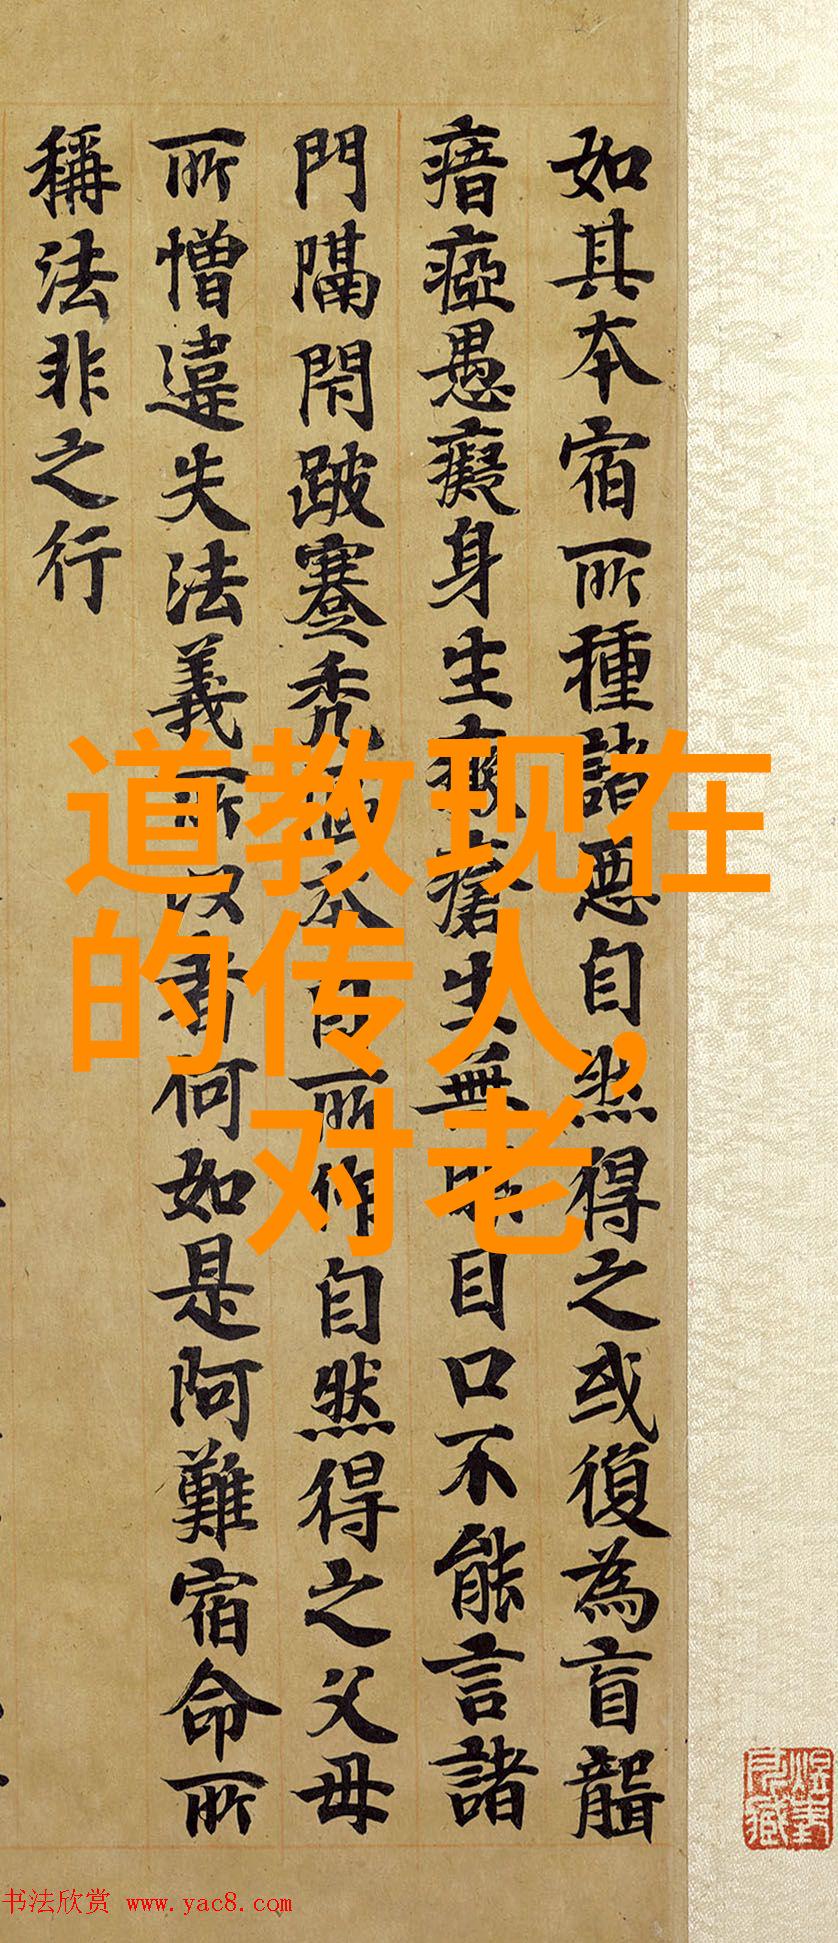 如其本宿所種諸惡自然得之或復為盲聾
瘖瘂愚癡身生癩瘡失無明目口不能言諸
門隔閇跛蹇禿本自所作自然得之父母
所憎違失法義所以者何如是阿難宿命所
稱法非之行
道教现在
的传人,
对老
书法欣赏 www.yac8.com